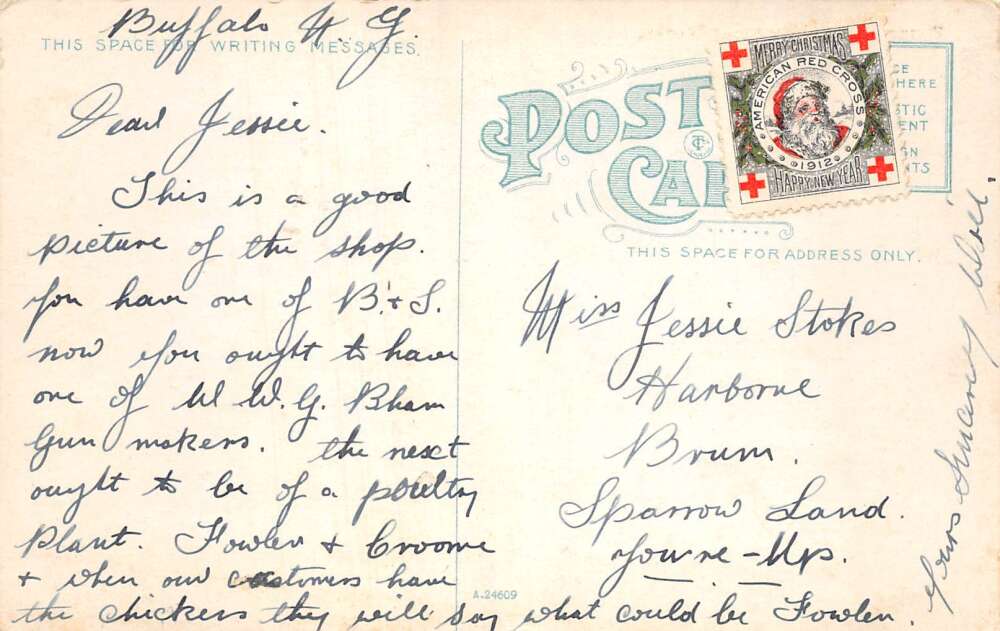 Buffalo N. Y.
THIS SPACE FOR WRITING MESSAGES.
Dear Jessie.
This is a good
picture of the shop.
You have one of B. & S.
now you ought to have
one of W W. G. Bham
Gun makers. the next
ought to be of a poultry
Plant. Fowler & Croome
& when our customers have
the chickers they will say what could be Fowler.
Yours Sincerely
POST
CAR
AMERICAN RED CROSS
MERRY CHRISTMAS
1912
HAPPY NEW YEAR
CE
HERE
STIC
ENT
GN
NTS
THIS SPACE FOR ADDRESS ONLY.
Miss Jessie Stokes
Harborne
Brum.
Sparrow Land.
You're-Ups.
A.24609